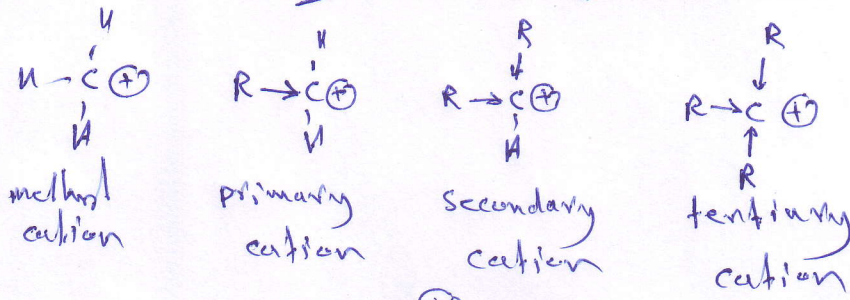 H
H - C ⊕
H
methyl
cation
H
R → C ⊕
H
primary
cation
R
R → C ⊕
H
secondary
cation
R
R → C ⊕
R
tertiary
cation